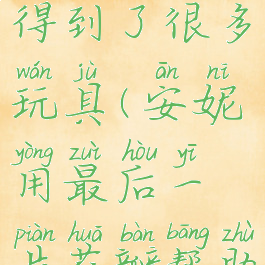 得到了很多
wán jù ān nī
玩具(安妮
yòng zuì hòu yī
用最后一
piàn huā bàn bāng zhù
片花瓣帮助